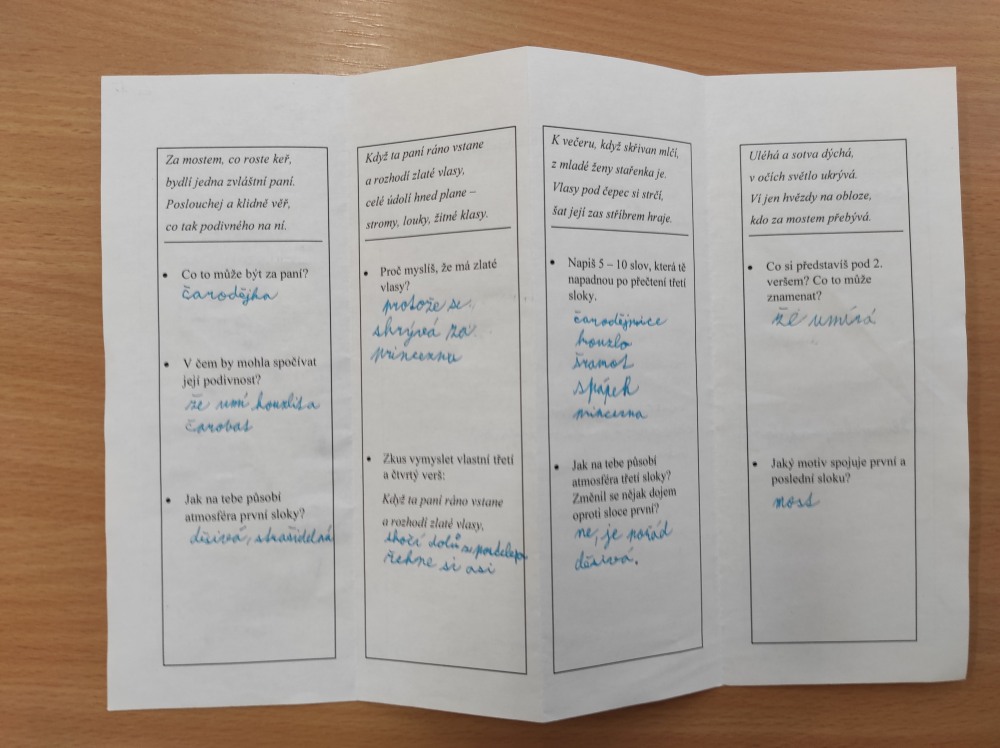 Za mostem, co roste keř,
bydlí jedna zvláštní paní.
Poslouchej a klidně věř,
co tak podivného na ní.
• Co to může být za paní?
čarodějka
• V čem by mohla spočívat
její podivnost?
že umí kouzlit a
čarovat
• Jak na tebe působí
atmosféra první sloky?
děsivá, strašidelná
Když ta paní ráno vstane
a rozhodí zlaté vlasy,
celé údolí hned plane –
stromy, louky, žitné klasy.
• Proč myslíš, že má zlaté
vlasy?
protože se
skrývá za
princeznu
• Zkus vymyslet vlastní třetí
a čtvrtý verš:
Když ta paní ráno vstane
a rozhodí zlaté vlasy,
skočí dolů z
řekne si asi
K večeru, když skřivan mlčí,
z mladé ženy stařenka je.
Vlasy pod čepec si strčí,
šat její zas stříbrem hraje.
• Napiš 5 – 10 slov, která tě
napadnou po přečtení třetí
sloky.
čarodějnice
kouzlo
šramot
spánek
princezna
• Jak na tebe působí
atmosféra třetí sloky?
Změnil se nějak dojem
oproti sloce první?
ne, je pořád
děsivá.
Uléhá a sotva dýchá,
v očích světlo ukrývá.
Ví jen hvězdy na obloze,
kdo za mostem přebývá.
• Co si představíš pod 2.
veršem? Co to může
znamenat?
že umírá
• Jaký motiv spojuje první a
poslední sloku?
most